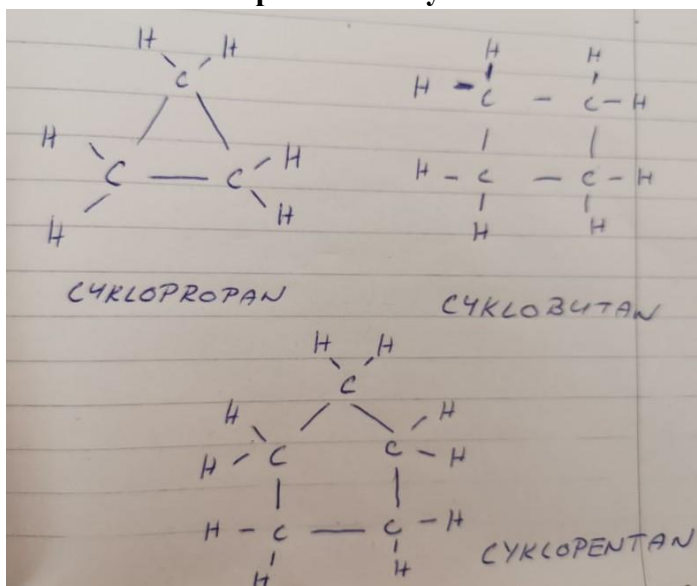 H H
C
H
C C H
H H
CYKLOPROPAN
H H
H C C H
H C C H
H H
CYKLOBUTAN
H H
C
H H
H C C H
H C C H
H H
CYKLOPENTAN